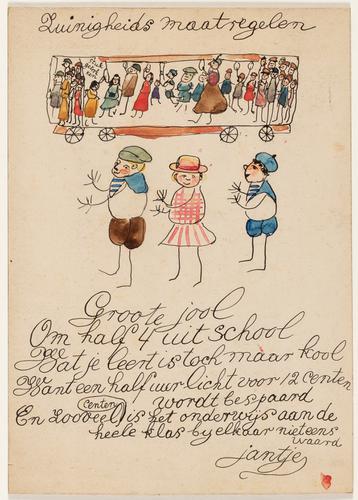 Zuinigheids maatregelen
Groote jool
Om half 4 uit school
Wat je leert is toch maar kool
Want een half uur licht voor 12 centen
wordt bespaard
En Zooveel (centen) is het onderwijs aan de
heele klas by elkaar niet eens
waard
jantje